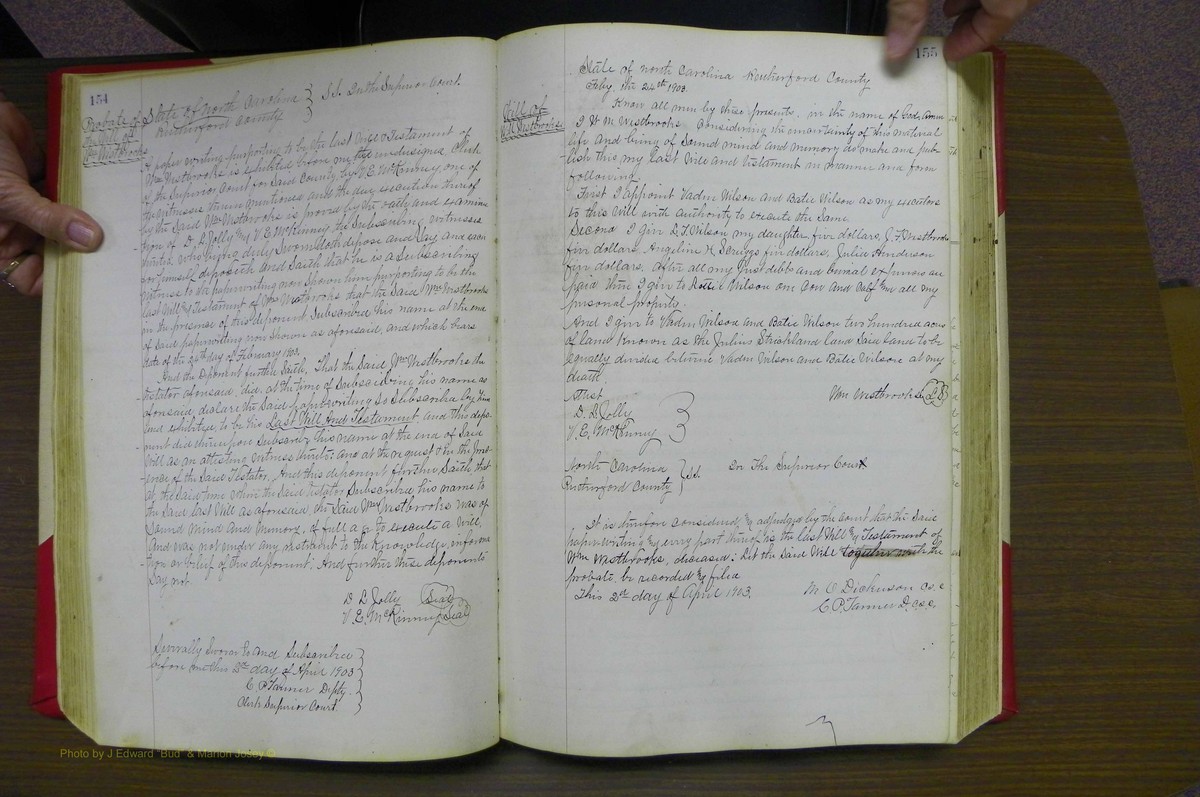 154
Probate of
Will of
Wm Westbrooks
State of North Carolina } S.S. In the Superior Court.
Rutherford County
A paper writing purporting to be the last Will & Testament of
Wm Westbrooks is exhibited before me the undersigned, Clerk
of the Superior Court for said County by V. E. McKinney one of
the witnesses therein mentioned and the due execution thereof
by the Said Wm Westbrooks is proved by the oath and examina
tion of D. L. Jolly & V. E. McKinney the Subscribing witnesses
thereto, who being duly Sworn doth depose and Say, and each
for himself deposeth and Saith that he is a Subscribing
Witness to the paperwriting now Shown him purporting to be the
last Will & Testament of Wm Westbrooks that the Said Wm Westbrooks
in the presence of this deponent Subscribed his name at the end
of said paperwriting now shown as aforesaid, and which bears
date of the 24th day of February 1903.
And the Deponent further Saith, That the Said Wm Westbrooks the
testator aforesaid, did, at the time of Subscribing his name as
aforesaid, declare the Said paperwriting So Subscribed by him
and exhibited to be his Last Will And Testament, and this depo-
nent did thereupon Subscribe his name at the end of Said
Will as an attesting witness thereto; and at the request & in the pres-
ence of the Said Testator. And this deponent further Saith that
at the Said time when the Said testator Subscribed his name to
the Said last Will as aforesaid, the Said Wm Westbrooks was of
Sound Mind And Memory, of full age to execute a Will,
And was not under any restraint to the Knowledge, informa
tion or belief of this deponent: And further these deponents
Say not.
D L Jolly (Seal)
V. E. McKinney (Seal)
Severally Sworn to and Subscribed
before me this 2nd day of April 1903
C. P. Tanner Depty.
Clerk Superior Court.
155
Will of
W.M. Westbrooks
State of North Carolina Rutherford County
Feby. the 24th 1903.
Know all men by these presents, in the name of God, Amen
I W M Westbrooks, considering the uncertainty of this material
life and being of Sound mind and memory do make and pub-
lish this my Last Will and testament in manner and form
following.
First I appoint Vader Wilson and Batie Wilson as my executors
to this Will with authority to execute the Same.
Second I give D. F. Wilson my daughter five dollars, J. F. Westbrooks
five dollars, Angeline H. Scruggs five dollars, Julia Henderson
five dollars, After all my Just debts and burial expenses are
paid then I give to Wilson one Cow and Calf & all my
personal property.
And I give to Vader Wilson and Batie Wilson two hundred acres
of land Known as the Julius Strickland land Said land to be
equally divided between Vader Wilson and Batie Wilson at my
death
Attest
Wm Westbrooks (LS)
D. L. Jolly
V. E. McKinney
North Carolina } S.S. In The Superior Court
Rutherford County
It is therefore considered & adjudged by the Court that the Said
paperwriting & every part thereof is the last Will & Testament of
Wm Westbrooks, deceased; Let the Said Will together with the
probate, be recorded & filed
This 2nd day of April 1903.
M. O. Dickerson C.S.C
C. P. Tanner D. C.S.C.
Photo by J Edward "Bud" & Marion Josey ©